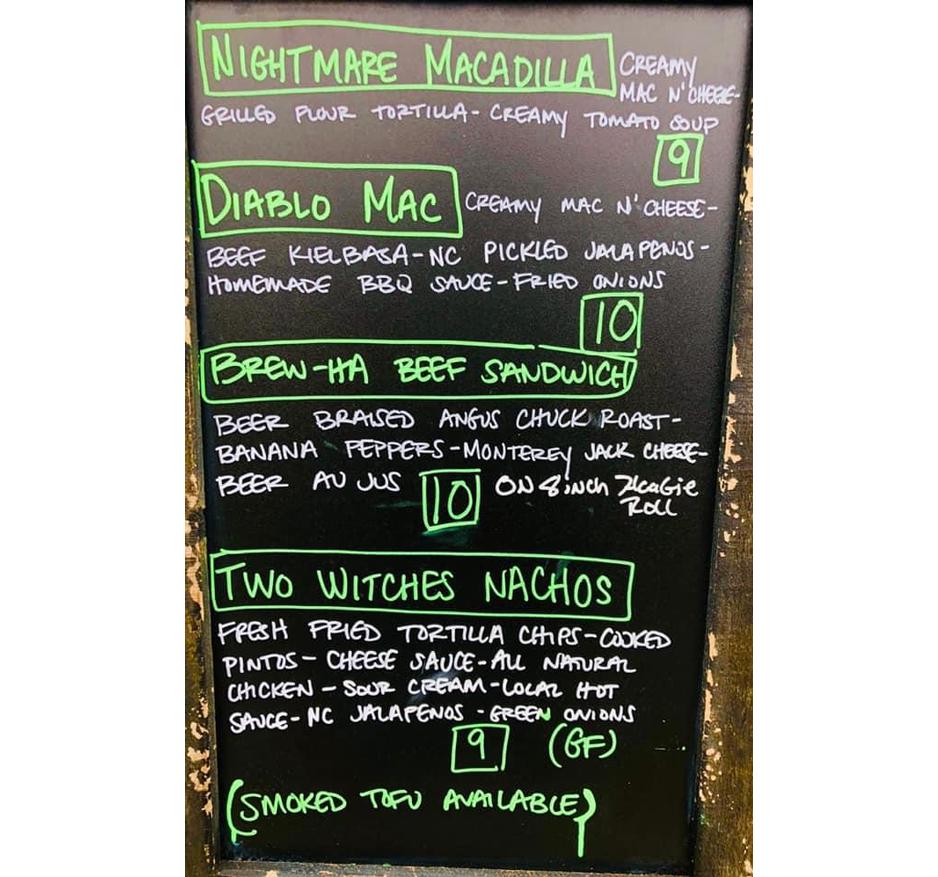 NIGHTMARE MACADILLA CREAMY
MAC N' CHEESE-
GRILLED FLOUR TORTILLA- CREAMY TOMATO SOUP
9
DIABLO MAC CREAMY MAC N' CHEESE-
BEEF KIELBASA-NC PICKLED JALAPENOS-
HOMEMADE BBQ SAUCE-FRIED ONIONS
10
BREW-HA BEEF SANDWICH
BEER BRAISED ANGUS CHUCK ROAST-
BANANA PEPPERS-MONTEREY JACK CHEESE-
BEER AU JUS 10 ON 8 inch HoaGie
ROLL
TWO WITCHES NACHOS
FRESH FRIED TORTILLA CHIPS-COOKED
PINTOS- CHEESE SAUCE-ALL NATURAL
CHICKEN - SOUR CREAM-LOCAL HOT
SAUCE-NC JALAPENOS -GREEN ONIONS
9 (GF)
(SMOKED TOFU AVAILABLE)